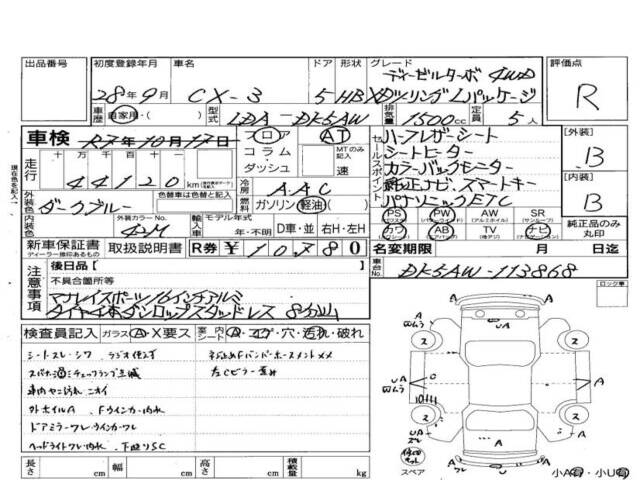 出品番号 初度登録年月 車名 ドア 形状 グレード 評価点
28年9月 CX-3 5 HB ディーゼルターボ 4WD
XDツーリング Lパッケージ R
車歴 自家用・( ) 型式 LDA-DK5AW 排気量 1500cc 定員 5人
車検 R7年10月17日 フロア AT セールスポイント ハーフレザーシート [外装] B
走行 十万千百十 44120 km コラム・ダッシュ MTのみ記入 速 シートヒーター
カラーバックモニター
冷房 AAC 純正ナビ スマートキー [内装] B
外装色 色替車は色替と記入 ダークブルー 燃料 ガソリン 軽油( ) パナソニックETC
外装カラーNo. 42M 輸入車 モデル年式 年・不明 D車・並 右H・左H
PS PW AW SR
カワ AB TV ナビ 純正品のみ丸印
新車保証書 ディーラー捺印あるもの 取扱説明書 R券 ¥10780 名変期限 月 日迄
注意事項 後日品[ ] 車台No. DK5AW-113868
不具合箇所等 ロック車
マナレイスポーツ16インチアルミ
タイヤ4本ダンロップスタッドレス 8分山
検査員記入 ガラス A・X要ス 室内 シート A・コゲ・穴・汚れ・破れ
シートスレ・シワ
車内ヤニ汚れ ニオイ
外ホイルA Fウインカー内水
ドアミラーワレ ウインカーワレ
ヘッドライトワレ 内水 下廻りSC
長さ cm 幅 cm 高さ cm 積載量 kg
スペア 小A・小U